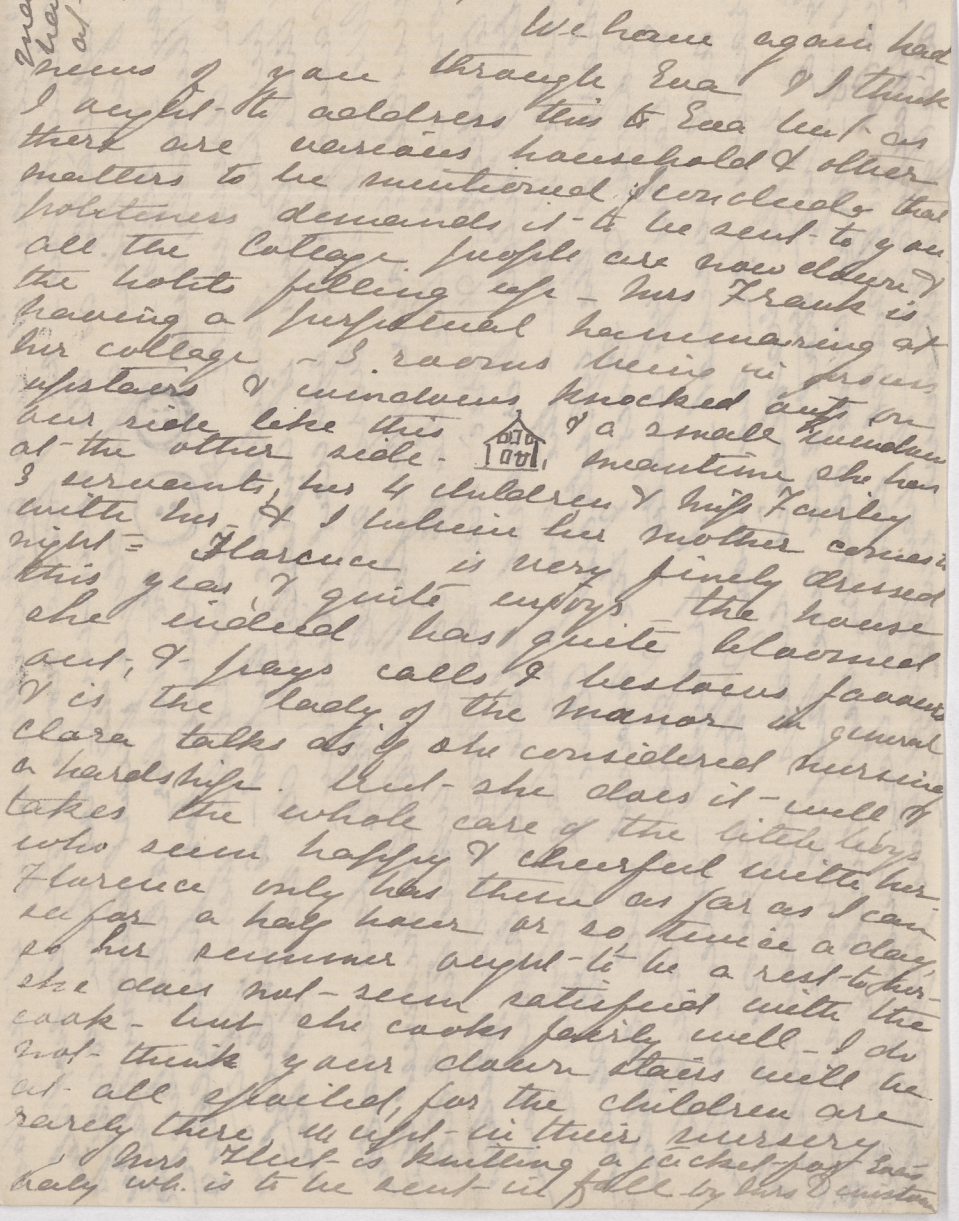 We have again had
news of you through Eva & I think
I ought to address this to Eva but as
there are various household & other
matters to be mentioned I conclude that
politeness demands it to be sent to you
all the Cottage people are now down &
the hotels filling up - Mrs Frank is
having a perpetual hammering at
her cottage - 3 rooms being in
upstairs & windows knocked out on
our side like this & a small window
at the other side. meantime she has
3 servants, her 4 children & Miss Fairley
with her & I believe her mother comes
night = Florence is very finely dressed
this year, & quite enjoys the house
she indeed has quite bloomed
out, & pays calls & bestows favours
& is the lady of the manor in general
Clara talks as if she considered nursing
a hardship. but she does it well &
takes the whole care of the little boys
who seem happy & cheerful with her
Florence only has them as far as I can
see for a half hour or so twice a day,
so her summer ought to be a rest to her -
she does not seem satisfied with the
cook - but she cooks fairly well - I do
not think your down stairs will be
at all spoiled, for the children are
rarely there, in their nursery
Mrs is knitting a jacket for Eva's
baby wh. is to be sent in fall by Mrs